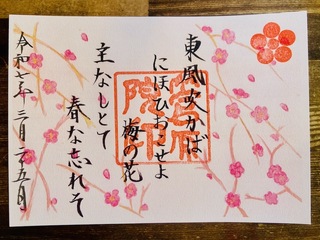 東風吹かば
にほひおこせよ
梅の花
主なしとて
春な忘れそ
令和七年三月二五日